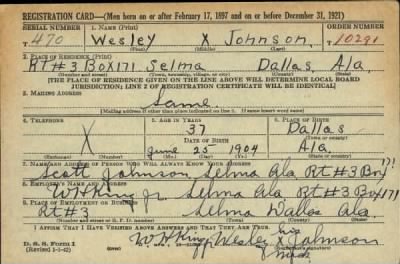 REGISTRATION CARD—(Men born on or after February 17, 1897 and on or before December 31, 1921)
SERIAL NUMBER 1. NAME (Print) ORDER NUMBER
T 470 Wesley X Johnson 10291
(First) (Middle) (Last)
2. PLACE OF RESIDENCE (Print)
RT #3 Box 171 Selma Dallas, Ala,
(Number and street) (Town, township, village, or city) (County) (State)
[THE PLACE OF RESIDENCE GIVEN ON THE LINE ABOVE WILL DETERMINE LOCAL BOARD
JURISDICTION; LINE 2 OF REGISTRATION CERTIFICATE WILL BE IDENTICAL]
3. MAILING ADDRESS
Same
[Mailing address if other than place indicated on line 2. If same insert word same]
4. TELEPHONE 5. AGE IN YEARS 6. PLACE OF BIRTH
X 37 Dallas
DATE OF BIRTH (Town or county)
June 25 1904 Ala.
(Exchange) (Number) (Mo.) (Day) (Yr.) (State or country)
7. NAME AND ADDRESS OF PERSON WHO WILL ALWAYS KNOW YOUR ADDRESS
Scott Johnson, Selma Ala RT #3 Box 171
8. EMPLOYER'S NAME AND ADDRESS
W H King Jr Selma Ala RT #3 Box 171
9. PLACE OF EMPLOYMENT OR BUSINESS
RT #3 Selma Dallas Ala
(Number and street or R. F. D. number) (Town) (County) (State)
I AFFIRM THAT I HAVE VERIFIED ABOVE ANSWERS AND THAT THEY ARE TRUE.
D. S. S. Form 1
(Revised 1-1-42)
his
Wesley X Johnson
mark